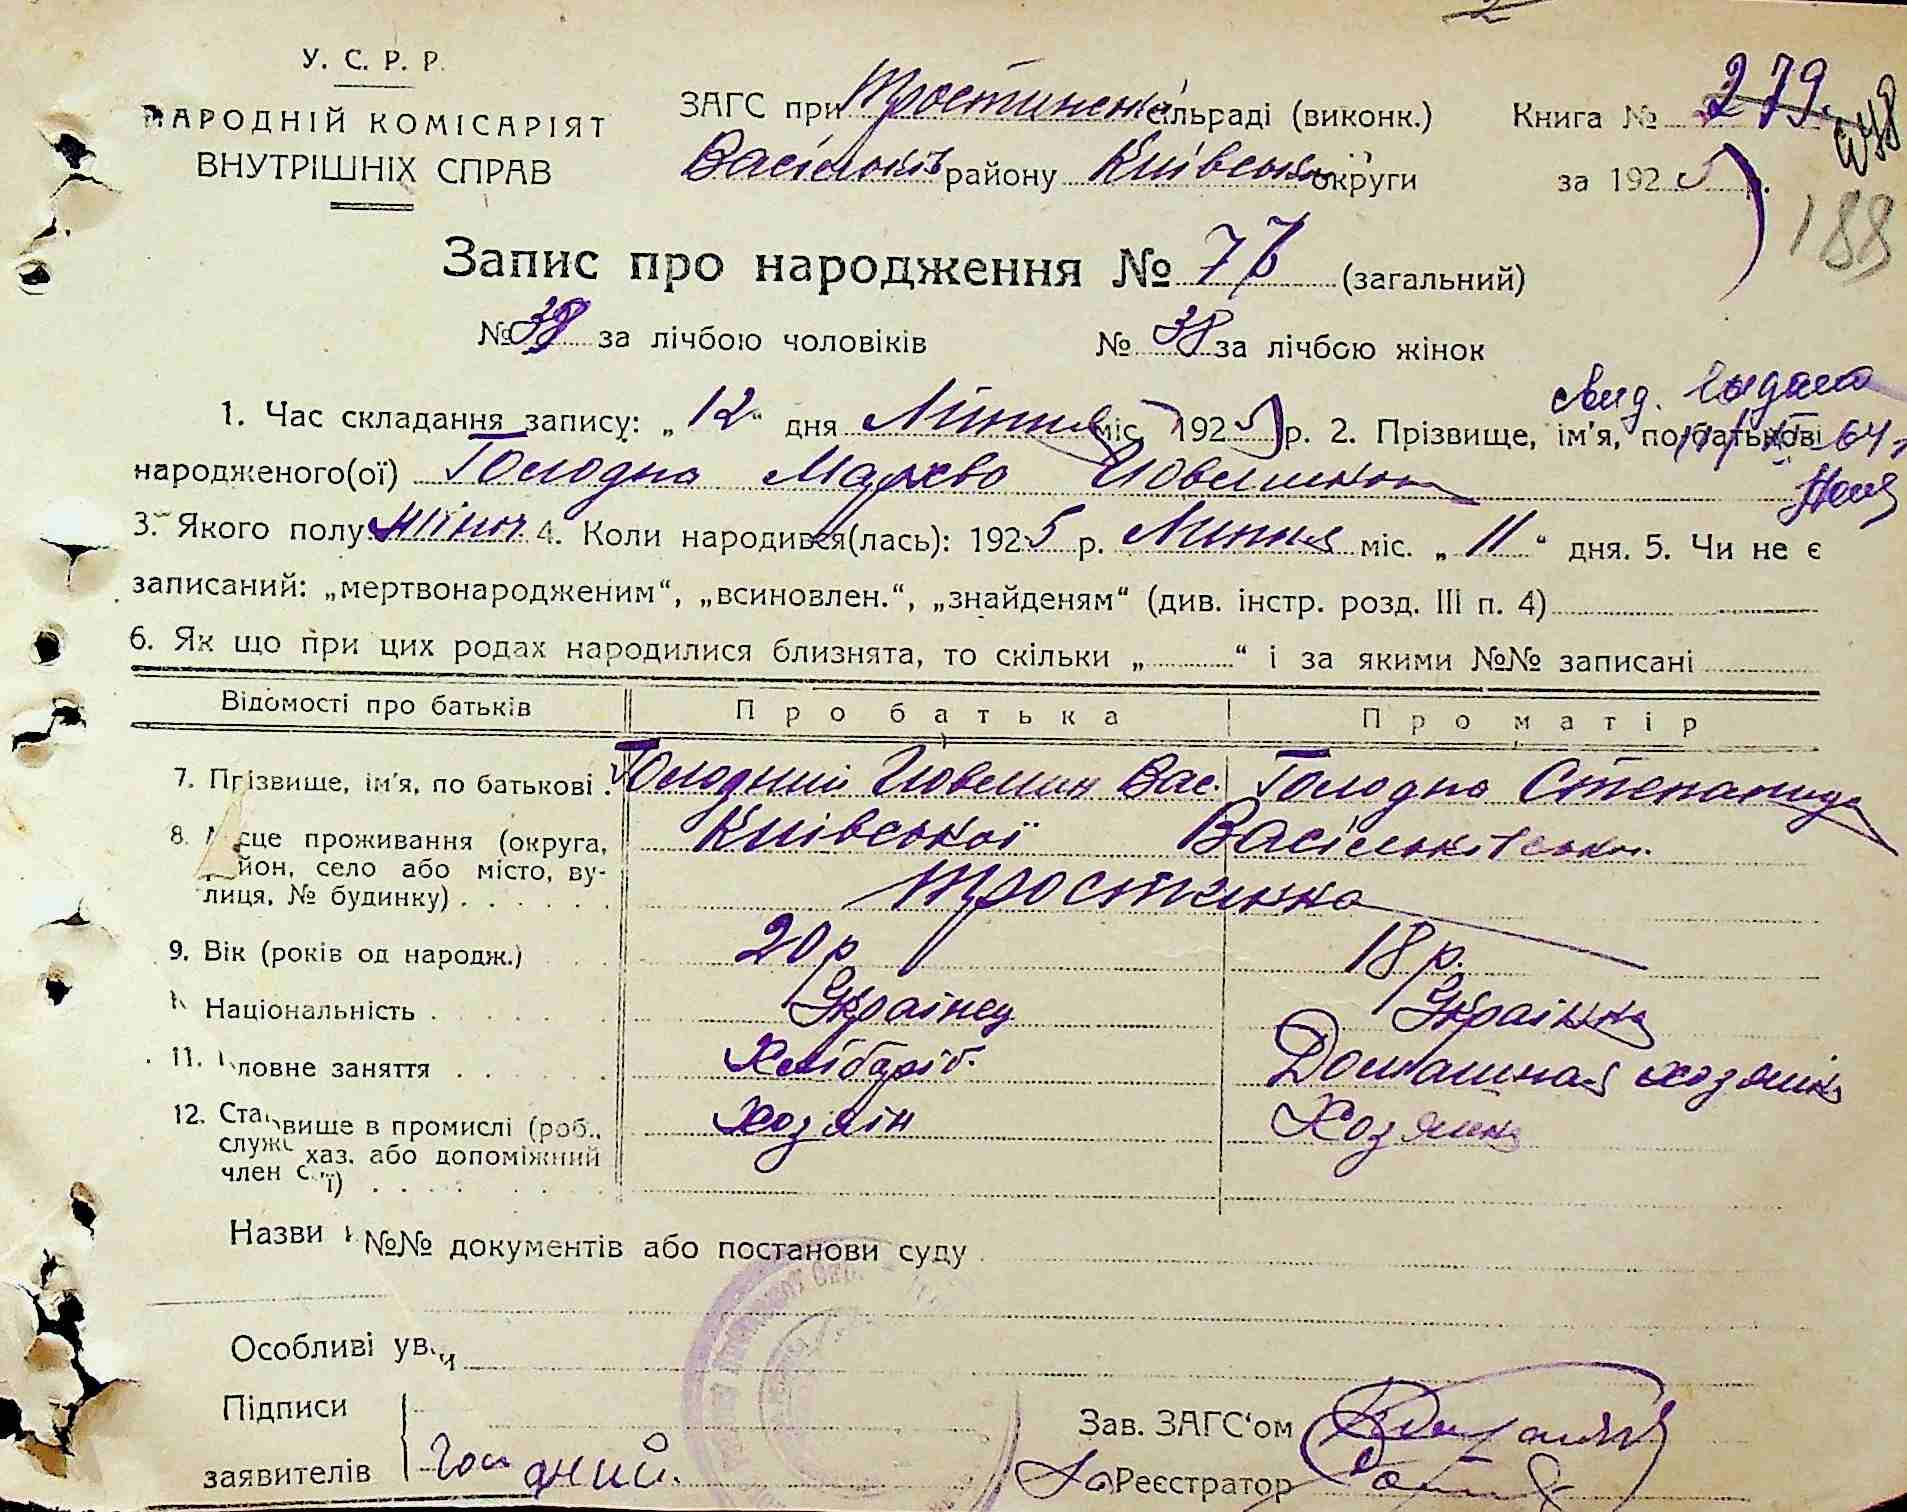 У. С. Р. Р.
НАРОДНІЙ КОМІСАРІЯТ
ВНУТРІШНІХ СПРАВ
ЗАГС при Тростинській сільраді (виконк.)
Васильків району Київської округи
Книга № 279
за 1925 р.
188
Запис про народження № 76 (загальний)
№ 38 за лічбою чоловіків № 38 за лічбою жінок
1. Час складання запису: „12" дня Липня міс. 1925 р. 2. Прізвище, ім'я, по батькові
народженого(ої) Голодна Марєво
3. Якого полу жіноч. 4. Коли народився(лась): 1925 р. Липня міс. „11" дня. 5. Чи не є
записаний: „мертвонародженим", „всиновлен.", „знайденям" (див. інстр. розд. III п. 4)
6. Як що при цих родах народилися близнята, то скільки „ " і за якими №№ записані
Відомості про батьків Про батька Про матір
7. Прізвище, ім'я, по батькові Голодний Вас. Голодна Степанида
8. Місце проживання (округа, район, село або місто, вулиця, № будинку) Київської Васильківськ.
Тростинка
9. Вік (років од народж.) 20 р 18 р.
Національність Українец Українка
11. Головне заняття Хлібороб. Домашная хозяйка
12. Становище в промислі (роб., служ. хаз. або допоміжний член сім'ї) Хозяін Хозяйка
Назви і №№ документів або постанови суду
Особливі уваги
Підписи
заявителів Голодний.
Зав. ЗАГС'ом
Реєстратор